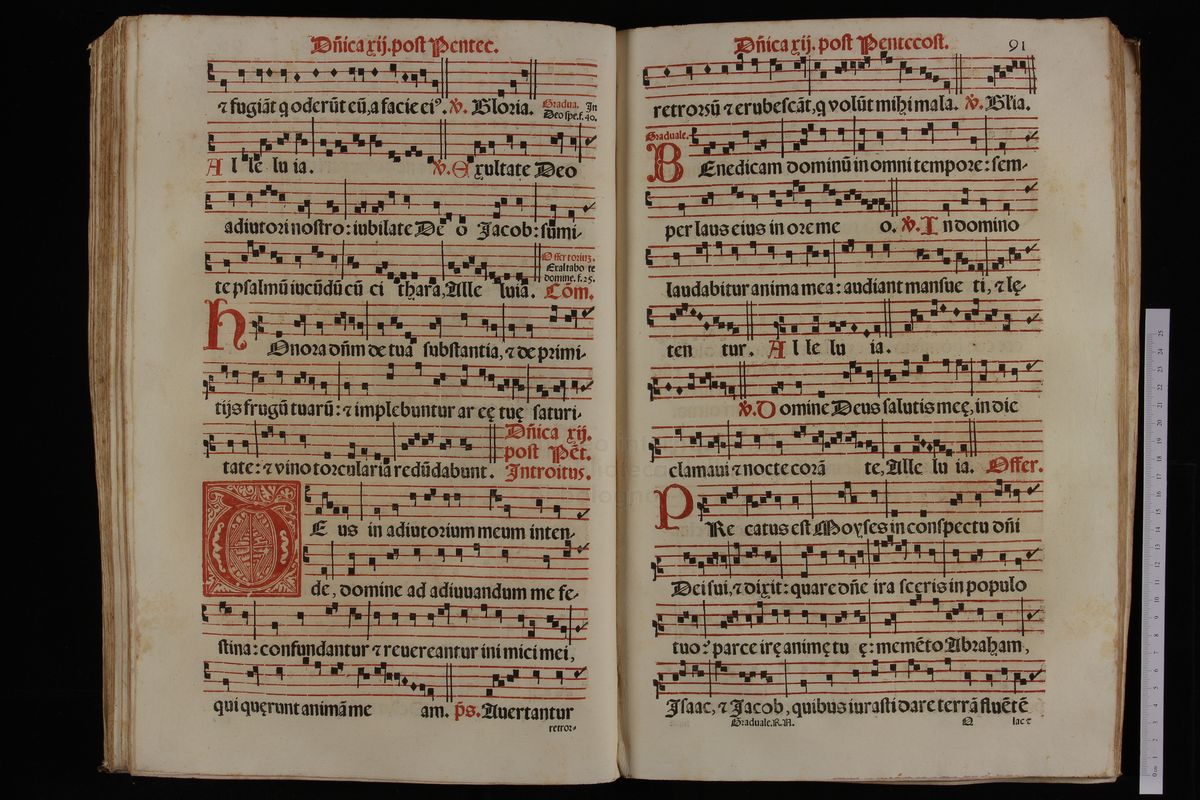 Dñica xij. post Pentec.
⁊ fugiãt q oderũt eũ, a facie ei⁹. ℣. Gloria.
Gradua. In
Deo spe. f. 40.
Al le lu ia. ℣. Exultate Deo
adiutori nostro: iubilate De o Jacob: sumi-
te psalmũ iucũdũ cũ ci thara, Alle luia. Cõm.
Offertoriuz.
Exaltabo te
domine. f. 25.
HOnora dñm de tua substantia, ⁊ de primi-
tijs frugũ tuarũ: ⁊ implebuntur ar eę tuę saturi-
tate: ⁊ vino torcularia redũdabunt.
Dñica xij.
post Pẽt.
Introitus.
DE us in adiutorium meum inten-
de, domine ad adiuuandum me fe-
stina: confundantur ⁊ reuereantur ini mici mei,
qui quęrunt animã me am. p̃s. Auertantur
retror-
Dñica xij. post Pentecost. 91
retrorsũ ⁊ erubescãt, q volũt mihi mala. ℣. Gl̃ia.
Graduale.
BEnedicam dominũ in omni tempore: sem-
per laus eius in ore me o. ℣. In domino
laudabitur anima mea: audiant mansue ti, ⁊ lę-
ten tur. Al le lu ia.
℣. Domine Deus salutis meę, in die
clamaui ⁊ nocte corã te, Alle lu ia. Offer.
PRe catus est Moyses in conspectu dñi
Dei sui, ⁊ dixit: quare dñe ira sceris in populo
tuo? parce irę animę tu ę: memẽto Abraham,
Isaac, ⁊ Jacob, quibus iurasti dare terrã fluẽtẽ
Graduale. R. A. lac ⁊